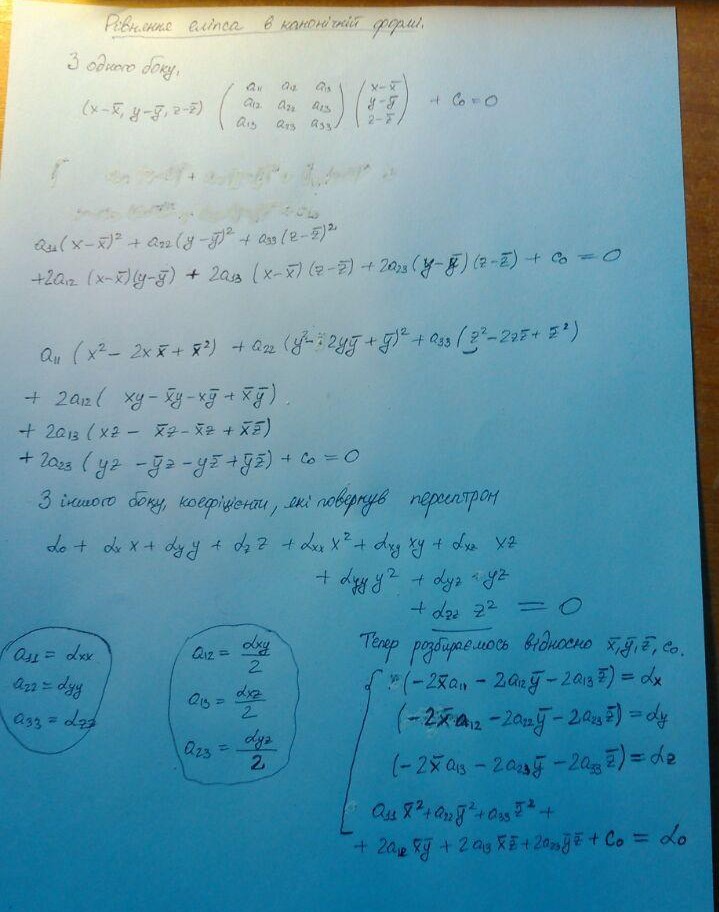 Рівняння еліпса в канонічній формі.
З одного боку,
(x-x̄, y-ȳ, z-z̄) ( a₁₁ a₁₂ a₁₃ ) ( x-x̄ )
( a₁₂ a₂₂ a₂₃ ) ( y-ȳ ) + c₀ = 0
( a₁₃ a₂₃ a₃₃ ) ( z-z̄ )
a₁₁(x-x̄)² + a₂₂(y-ȳ)² + a₃₃(z-z̄)²
+2a₁₂(x-x̄)(y-ȳ) + 2a₁₃(x-x̄)(z-z̄) + 2a₂₃(y-ȳ)(z-z̄) + c₀ = 0
a₁₁(x² - 2xx̄ + x̄²) + a₂₂(y² - 2yȳ + ȳ)² + a₃₃(z² - 2zz̄ + z̄²)
+ 2a₁₂(xy - x̄y - xȳ + x̄ȳ)
+ 2a₁₃(xz - x̄z - x̄z + x̄z̄)
+ 2a₂₃(yz - ȳz - yz̄ + ȳz̄) + c₀ = 0
З іншого боку, коефіцієнти, які повернув персептрон
α₀ + αₓ x + α_y y + α_z z + αₓₓ x² + α_xy xy + α_xz xz
+ α_yy y² + α_yz yz
+ α_zz z² = 0
a₁₁ = α_xx
a₂₂ = α_yy
a₃₃ = α_zz
a₁₂ = α_xy / 2
a₁₃ = α_xz / 2
a₂₃ = α_yz / 2
Тепер розбираємось відносно x̄, ȳ, z̄, c₀.
(-2x̄a₁₁ - 2a₁₂ȳ - 2a₁₃z̄) = α_x
(-2x̄a₁₂ - 2a₂₂ȳ - 2a₂₃z̄) = α_y
(-2x̄a₁₃ - 2a₂₃ȳ - 2a₃₃z̄) = α_z
a₁₁x̄² + a₂₂ȳ² + a₃₃z̄² +
+ 2a₁₂x̄ȳ + 2a₁₃x̄z̄ + 2a₂₃ȳz̄ + c₀ = α₀